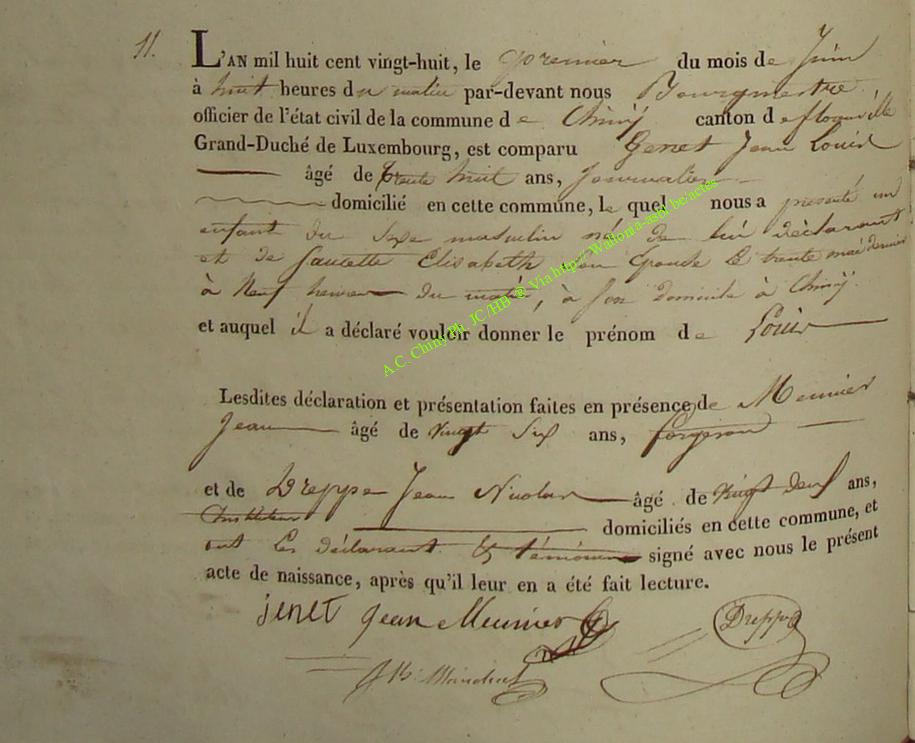 11.
L'AN mil huit cent vingt-huit, le premier du mois de Juin
à huit heures du matin par-devant nous Bourgmestre
officier de l'état civil de la commune de Chiny canton de florenville
Grand-Duché de Luxembourg, est comparu Genet Jean Louis
âgé de trente huit ans, Journalier
domicilié en cette commune, le quel nous a présenté un
enfant du Sexe masculin né de lui déclarant
et de Elisabeth son Epouse le trente mai dernier
à Neuf heures du matin, à son domicile à Chiny.
et auquel il a déclaré vouloir donner le prénom de Louis
A.C. Chiny Ph. JC/HB @ Via http://Wallonia-asbl.be/actes
Lesdites déclaration et présentation faites en présence de Meunier
Jean âgé de vingt Six ans, forgeron
et de Dreppe Jean Nicolas âgé de vingt deux ans,
Instituteur domiciliés en cette commune, et
ont les déclarant & témoins signé avec nous le présent
acte de naissance, après qu'il leur en a été fait lecture.
jenet Jean Meunier Dreppe